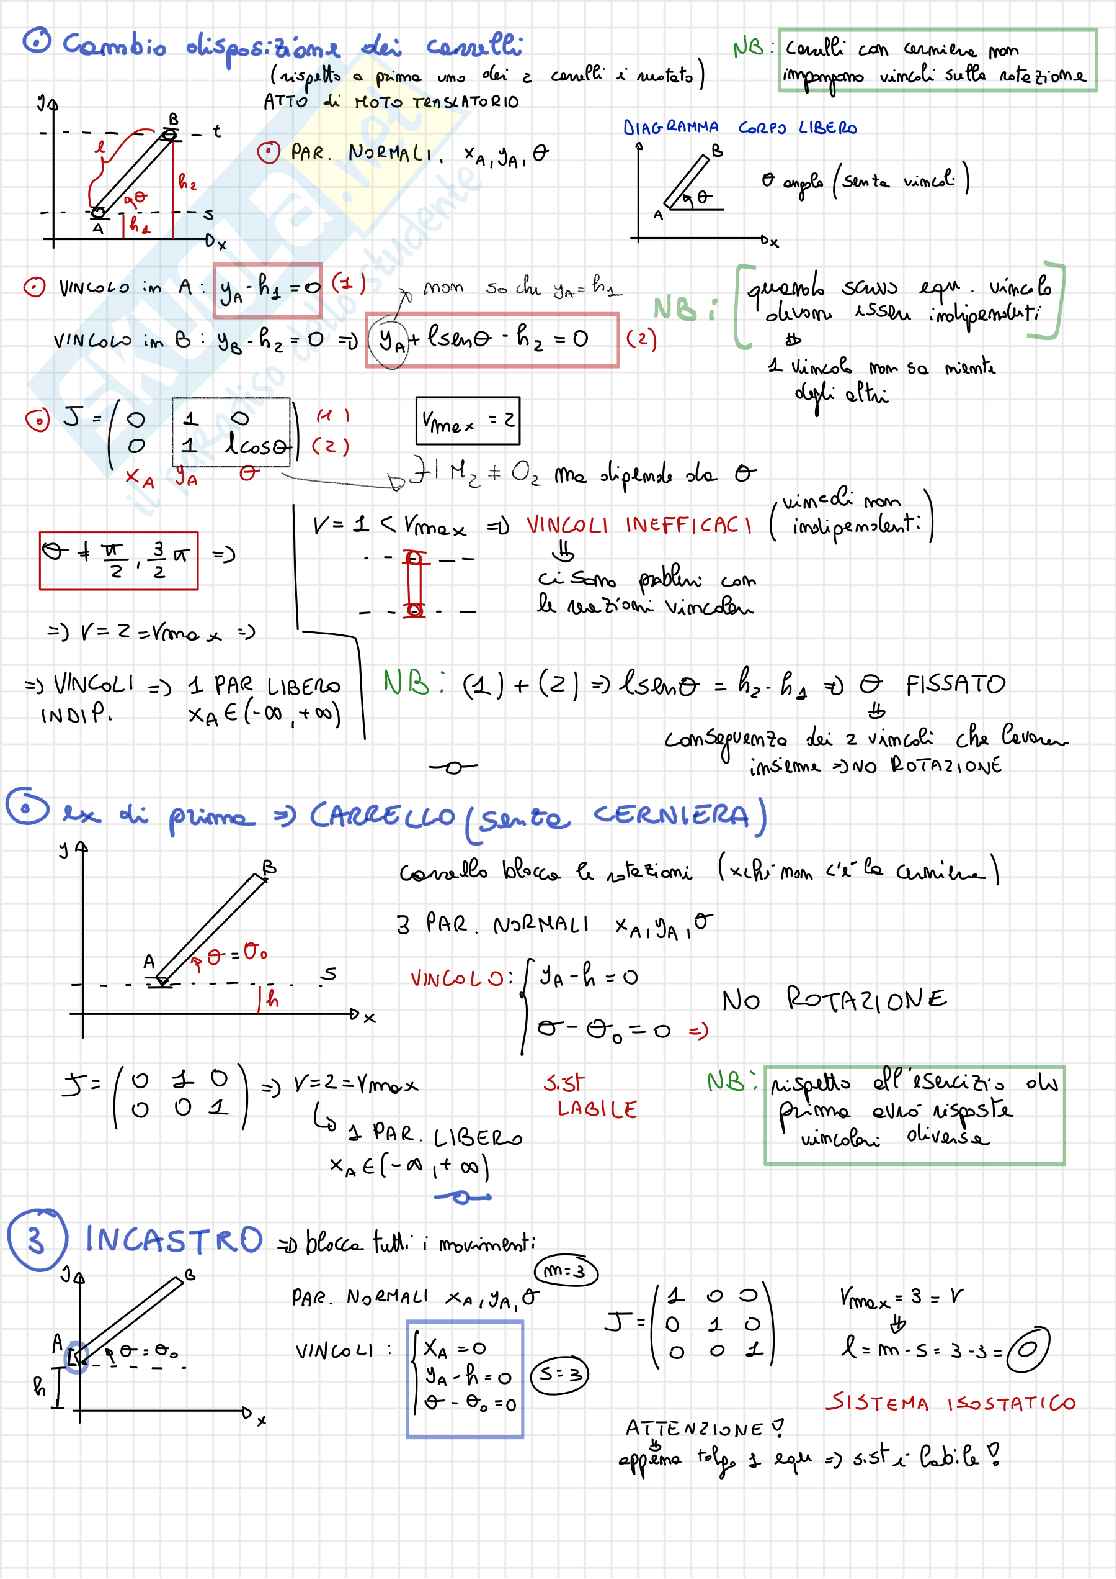 Cambio disposizione dei carrelli
(rispetto a prima uno dei 2 carrelli è ruotato)
ATTO di MOTO TRASLATORIO
NB: carrelli con cerniera non
impongono vincoli sulla rotazione
y
B
t
l
θ
h2
s
A
h1
x
PAR. NORMALI. xA, yA, θ
DIAGRAMMA CORPO LIBERO
B
A
θ
x
θ angolo (senza vincoli)
VINCOLO in A: yA - h1 = 0 (1)
non so che yA = h1
VINCOLO in B: yB - h2 = 0 => yA + lsenθ - h2 = 0 (2)
NB: [quando scrivo equ. vincolo
devono essere indipendenti]
⇓
1 vincolo non sa niente
degli altri
J = (0 1 0) (1)
(0 1 lcosθ) (2)
xA yA θ
Vmax = 2
∃| M2 ≠ O2 ma dipende da θ
θ ≠ π/2, 3/2 π =>
=> V = 2 = Vmax =>
=> VINCOLI => 1 PAR LIBERO
INDIP. xA ∈ (-∞, +∞)
V = 1 < Vmax => VINCOLI INEFFICACI (vincoli non
indipendenti)
⇓
ci sono problemi con
le reazioni vincolari
NB: (1) + (2) => lsenθ = h2 - h1 => θ FISSATO
⇓
conseguenza dei 2 vincoli che lavorano
insieme => NO ROTAZIONE
ex di prima => CARRELLO (senza CERNIERA)
y
B
A
θ = θ0
s
h
x
carrello blocca le rotazioni (xchè non c'è la cerniera)
3 PAR. NORMALI xA, yA, θ
VINCOLO: { yA - h = 0
θ - θ0 = 0 =>
NO ROTAZIONE
J = (0 1 0) => V = 2 = Vmax
(0 0 1)
1 PAR. LIBERO
xA ∈ (-∞, +∞)
SIST
LABILE
NB: rispetto all'esercizio di
prima avrò risposte
vincolari diverse
3 INCASTRO => blocca tutti i movimenti
y
B
A
θ = θ0
h
x
m = 3
PAR. NORMALI xA, yA, θ
VINCOLI: { xA = 0
yA - h = 0
θ - θ0 = 0
s = 3
J = (1 0 0)
(0 1 0)
(0 0 1)
Vmax = 3 = V
⇓
l = m - s = 3 - 3 = 0
SISTEMA ISOSTATICO
ATTENZIONE!
⇓
appena tolgo 1 equ => sist è labile!